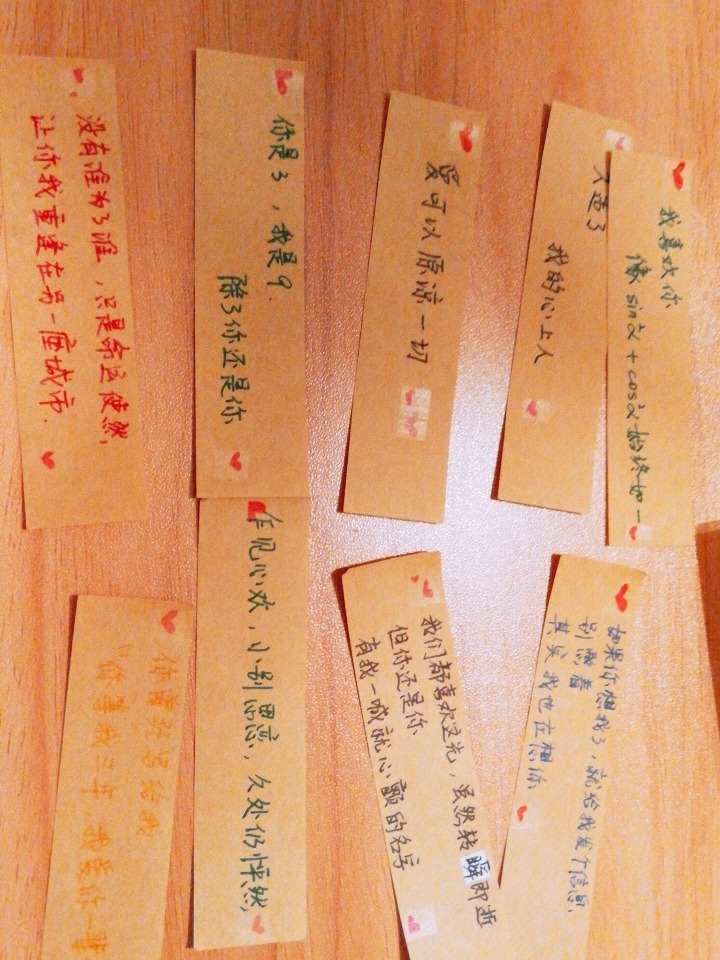 我喜欢你
像 sin²α + cos²α 始终如一
久违了
我的心上人
爱可以原谅一切
你是3，我是9.
除了你还是你
没有谁为了谁，只是命运使然,
让你我重逢在另一座城市.
如果你想我了，就给我发个信息,
别憋着
其实我也在想你
我们都喜欢这光，虽然转瞬即逝
但你还是你
有我一喊就心颤的名字
乍见心欢，小别思恋，久处仍怦然,
你曾 写给我
"你等我三年 我爱你一辈